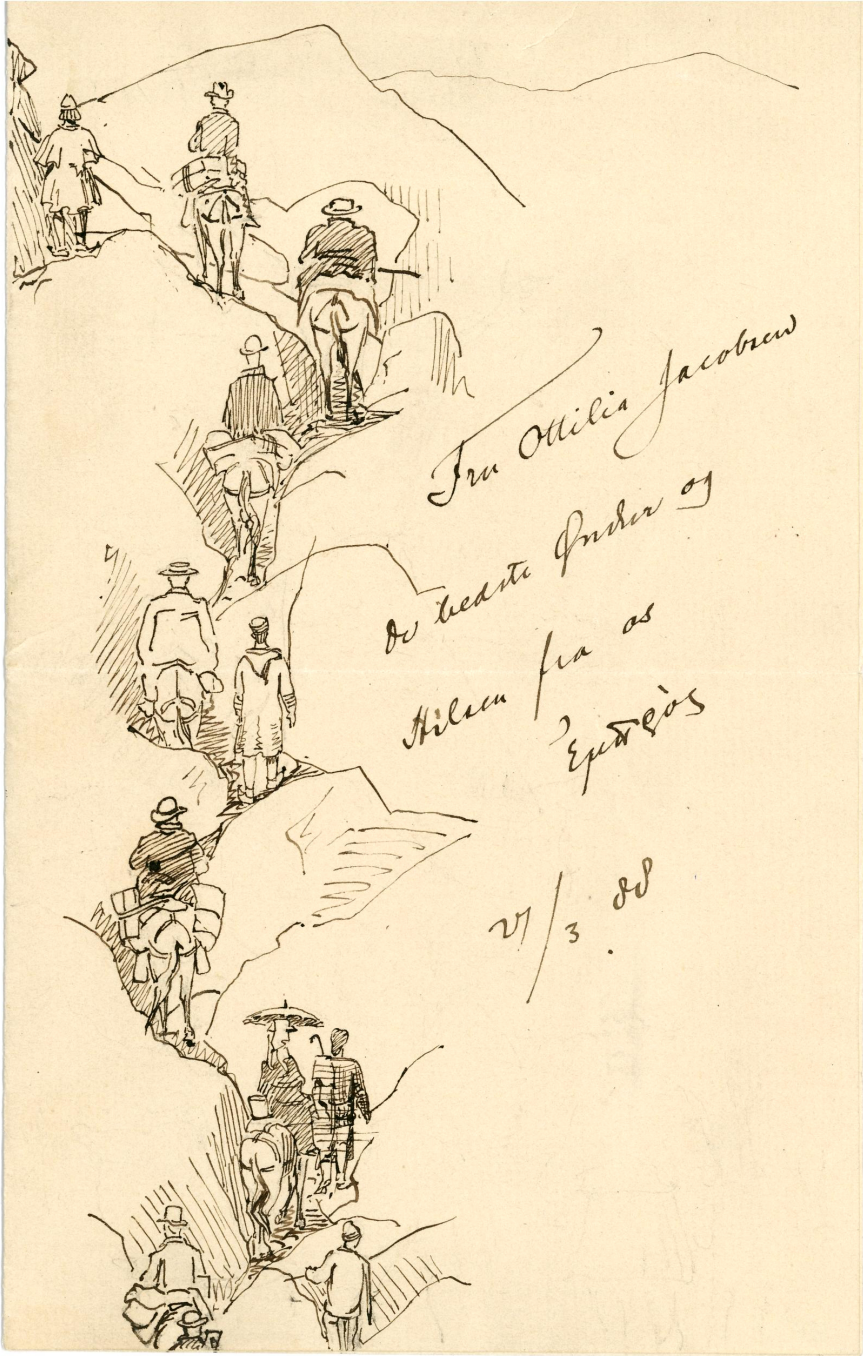 Fru Ottilia Jacobsen
de bedste Ønsker og
Hilsen fra os
Ἐμπρὸς
21/3 88.